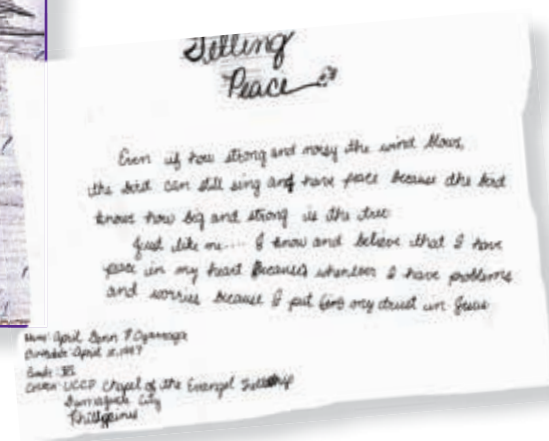 Telling
Peace
Even if how strong and noisy the wind blows,
the bird can still sing and have peace because the bird
knows how big and strong is the tree
Just like me.... I know and believe that I have
peace in my heart Because whenever I have problems
and worries because I put my trust in Jesus
Name: April Lynn P.
April 2, 1997
Grade: VI
UCCP Chapel of the Evangel Fellowship
Dumaguete City
Philippines